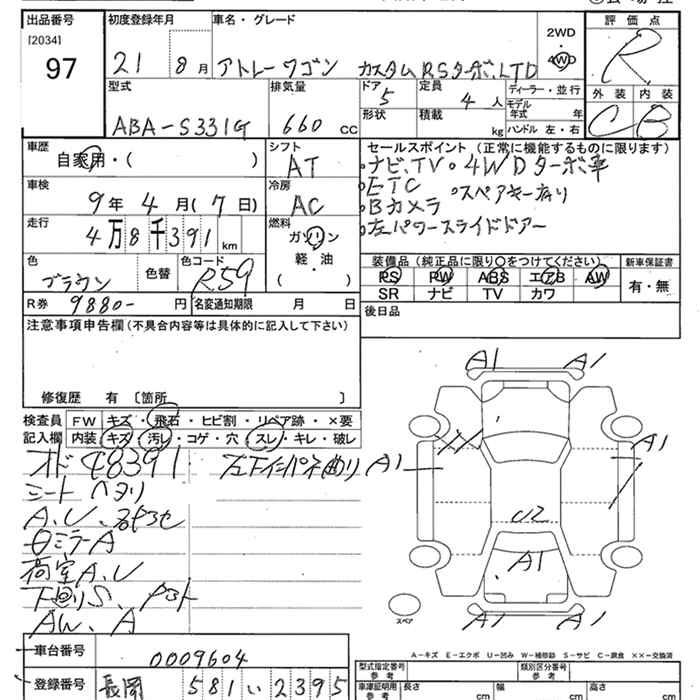 出品番号
[2034]
97
初度登録年月
21 8月
車名・グレード
アトレーワゴン カスタムRSターボLTD
2WD
・
4WD
評価点
R
外装 内装
C B
型式
ABA-S331G
排気量
660 CC
ドア
5
定員
4人
ディーラー・並行
形状
積載
kg
モデル年式 年
ハンドル 左・右
車歴
自家用・( )
シフト
AT
車検
9年4月(7日)
冷房
AC
走行
4万8千391km
燃料
ガソリン
軽・油
( )
色
ブラウン
色替
色コード
R59
R券 9880- 円
名変通知期限 月 日
セールスポイント(正常に機能するものに限ります)
・ナビ、TV・4WDターボ車
・ETC ・スペアキー有り
・Bカメラ
・左パワースライドドアー
装備品(純正品に限り○をつけてください)
新車保証書
RS PW ABS エアB AW
SR ナビ TV カワ
有・無
後日品
注意事項申告欄(不具合内容等は具体的に記入して下さい)
修復歴 有 〔箇所 〕
検査員
記入欄
FW キズ・飛石・ヒビ割・リペア跡・×要
内装 キズ・汚レ・コゲ・穴・スレ・キレ・破レ
オド48391
シートヘタリ
A、U、色あせ
ミラーA
荷室A、U
下廻りS
AW、A
A1 A1
A1
A1
U2
A1
A1 A1
スペア
A-キズ E-エクボ U-凹み W-補修跡 S-サビ C-腐食 ××-交換済
車台番号
0009604
登録番号
長岡 581 い 2395
型式指定番号
参考
類別区分番号
参考
車庫証明用
参考
長さ cm
幅 cm
高さ cm